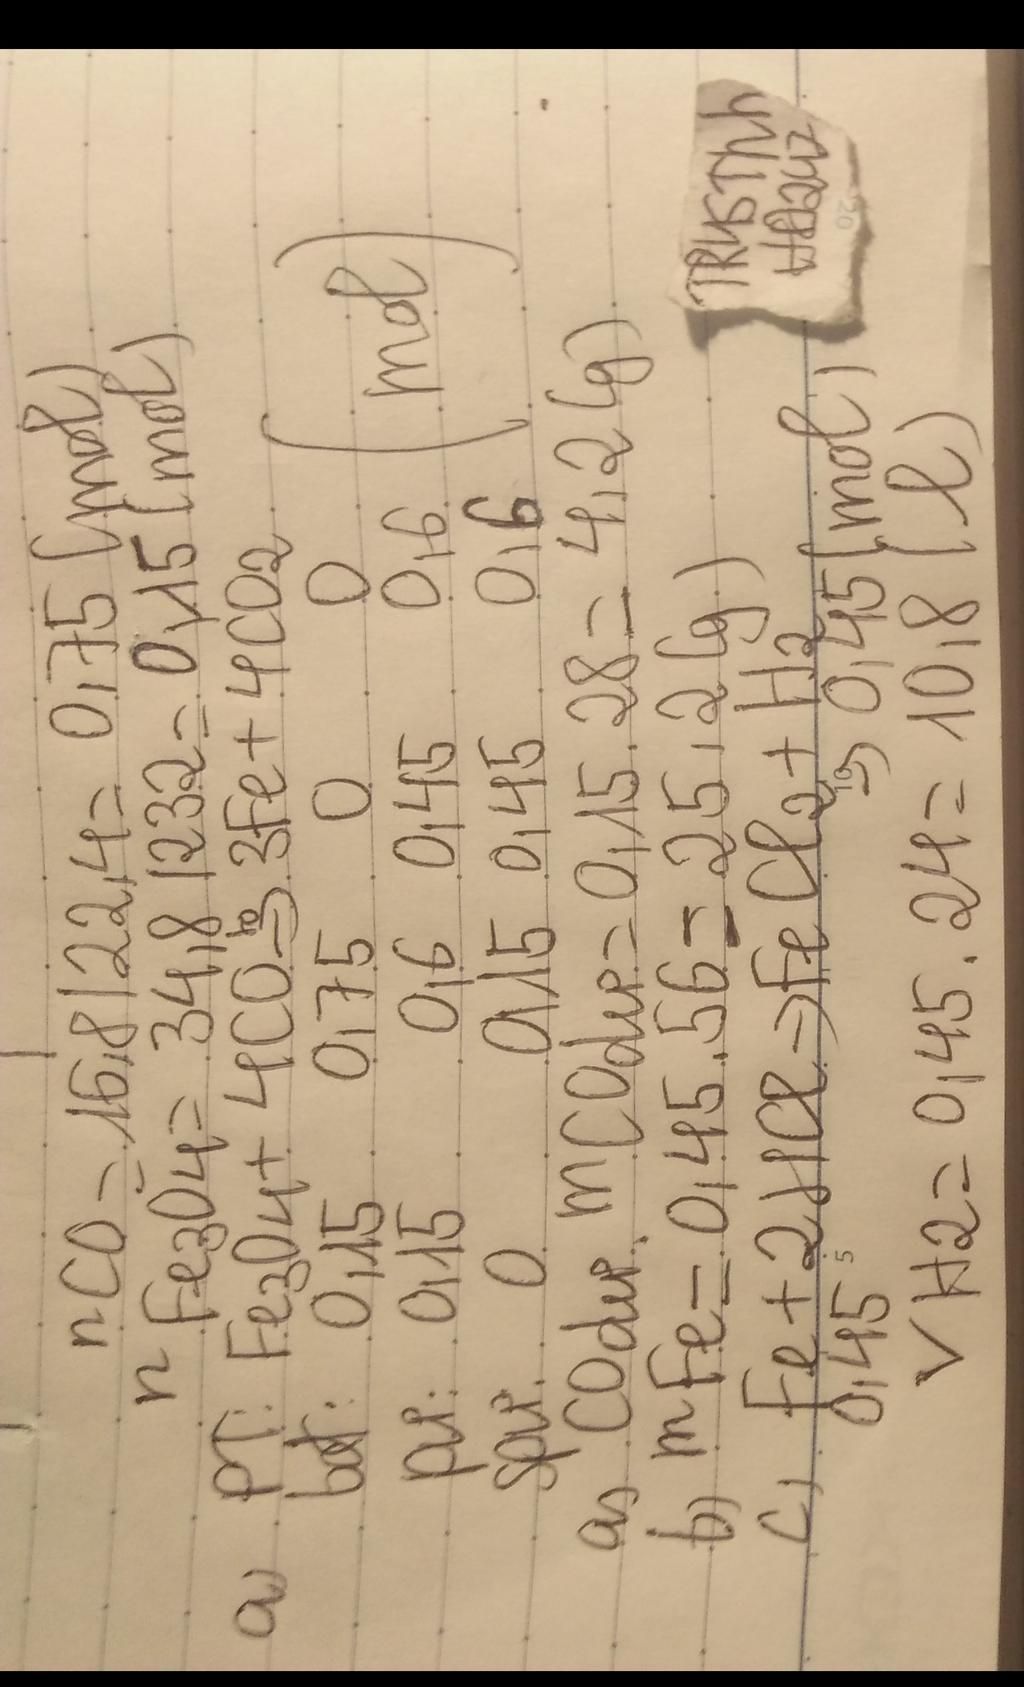 nCO = 16,8/22,4 = 0,75 (mol)
n Fe3O4 = 34,8/232 = 0,15 (mol)
a) PT: Fe3O4 + 4CO =to=> 3Fe + 4CO2
bđ: 0,15 0,75 0 0
pư: 0,15 0,6 0,45 0,6 (mol)
spư: 0 0,15 0,45 0,6
a) COdư. mCOdư = 0,15.28 = 4,2 (g)
b) mFe = 0,45.56 = 25,2 (g)
c) Fe + 2HCl => FeCl2 + H2
0,45 => 0,45 (mol)
VH2 = 0,45.24 = 10,8 (l)